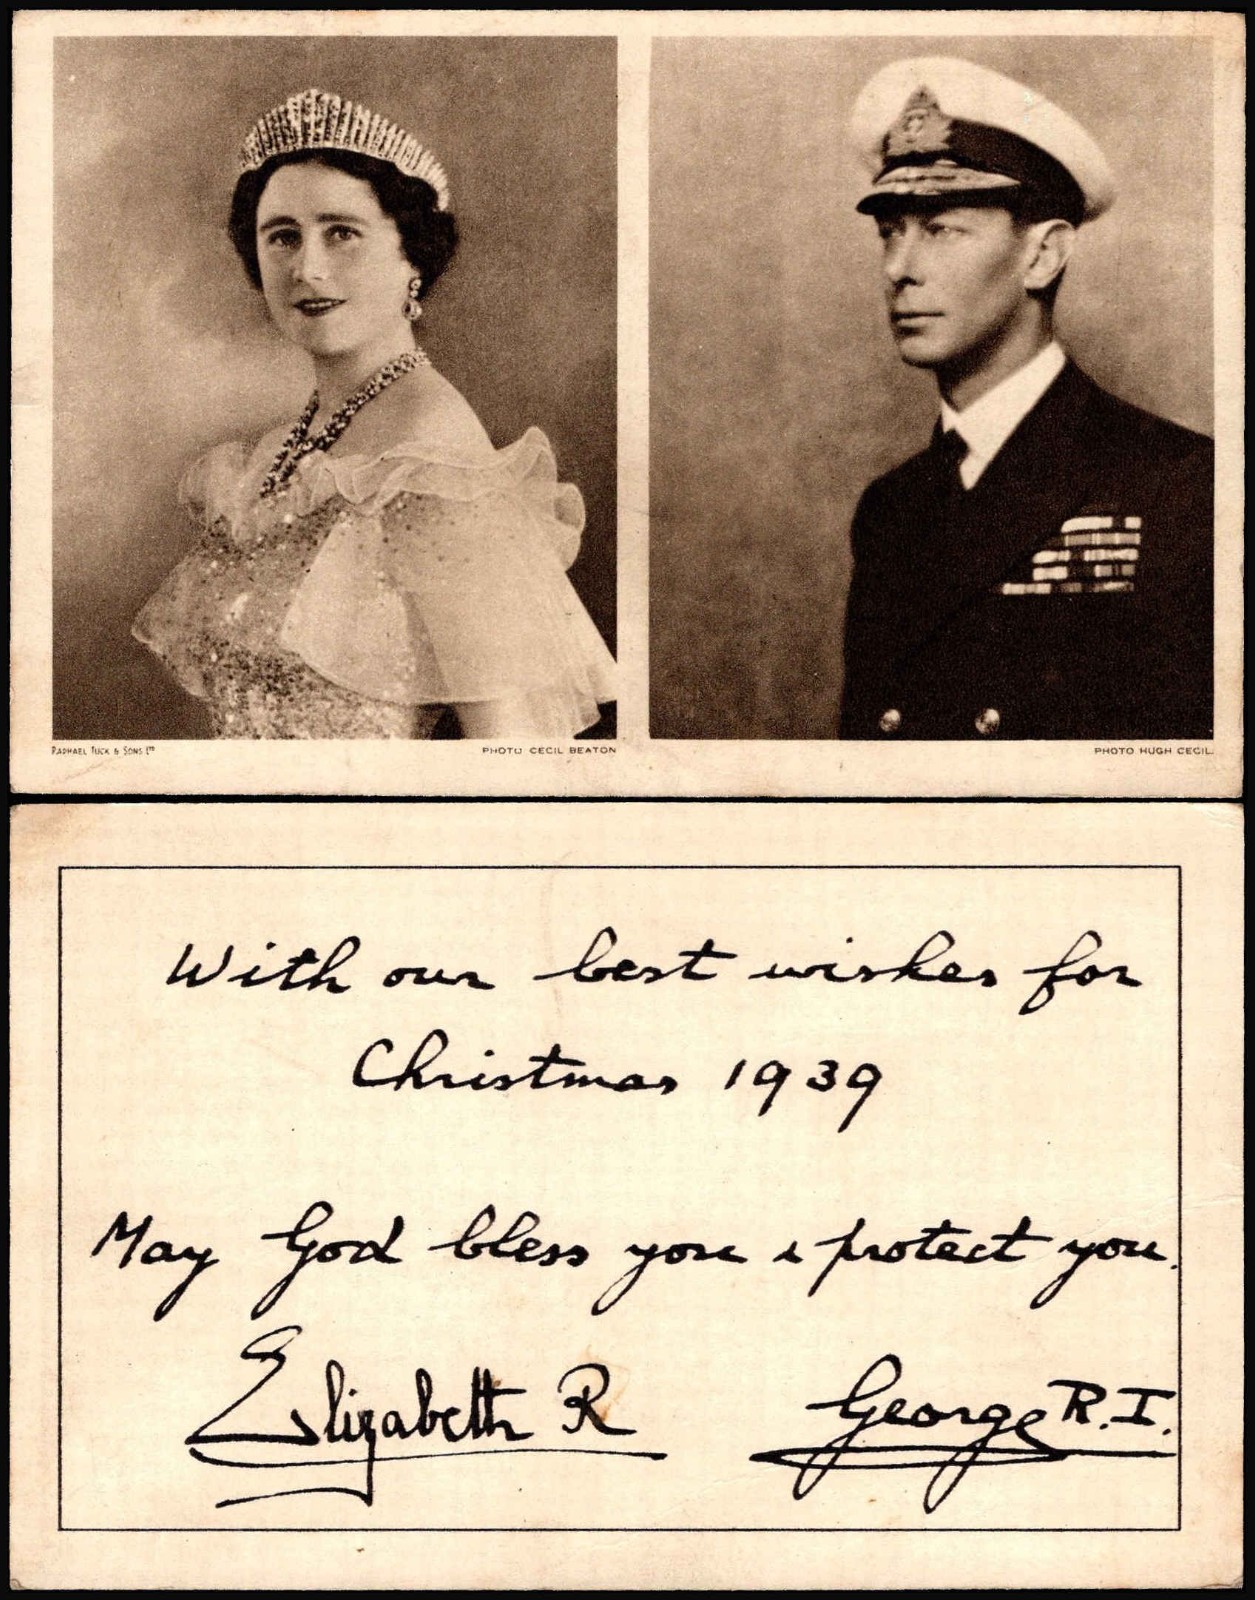 RAPHAEL TUCK & SONS LTD
PHOTO CECIL BEATON
PHOTO HUGH CECIL.
With our best wishes for
Christmas 1939
May God bless you & protect you.
Elizabeth R
George R.I.